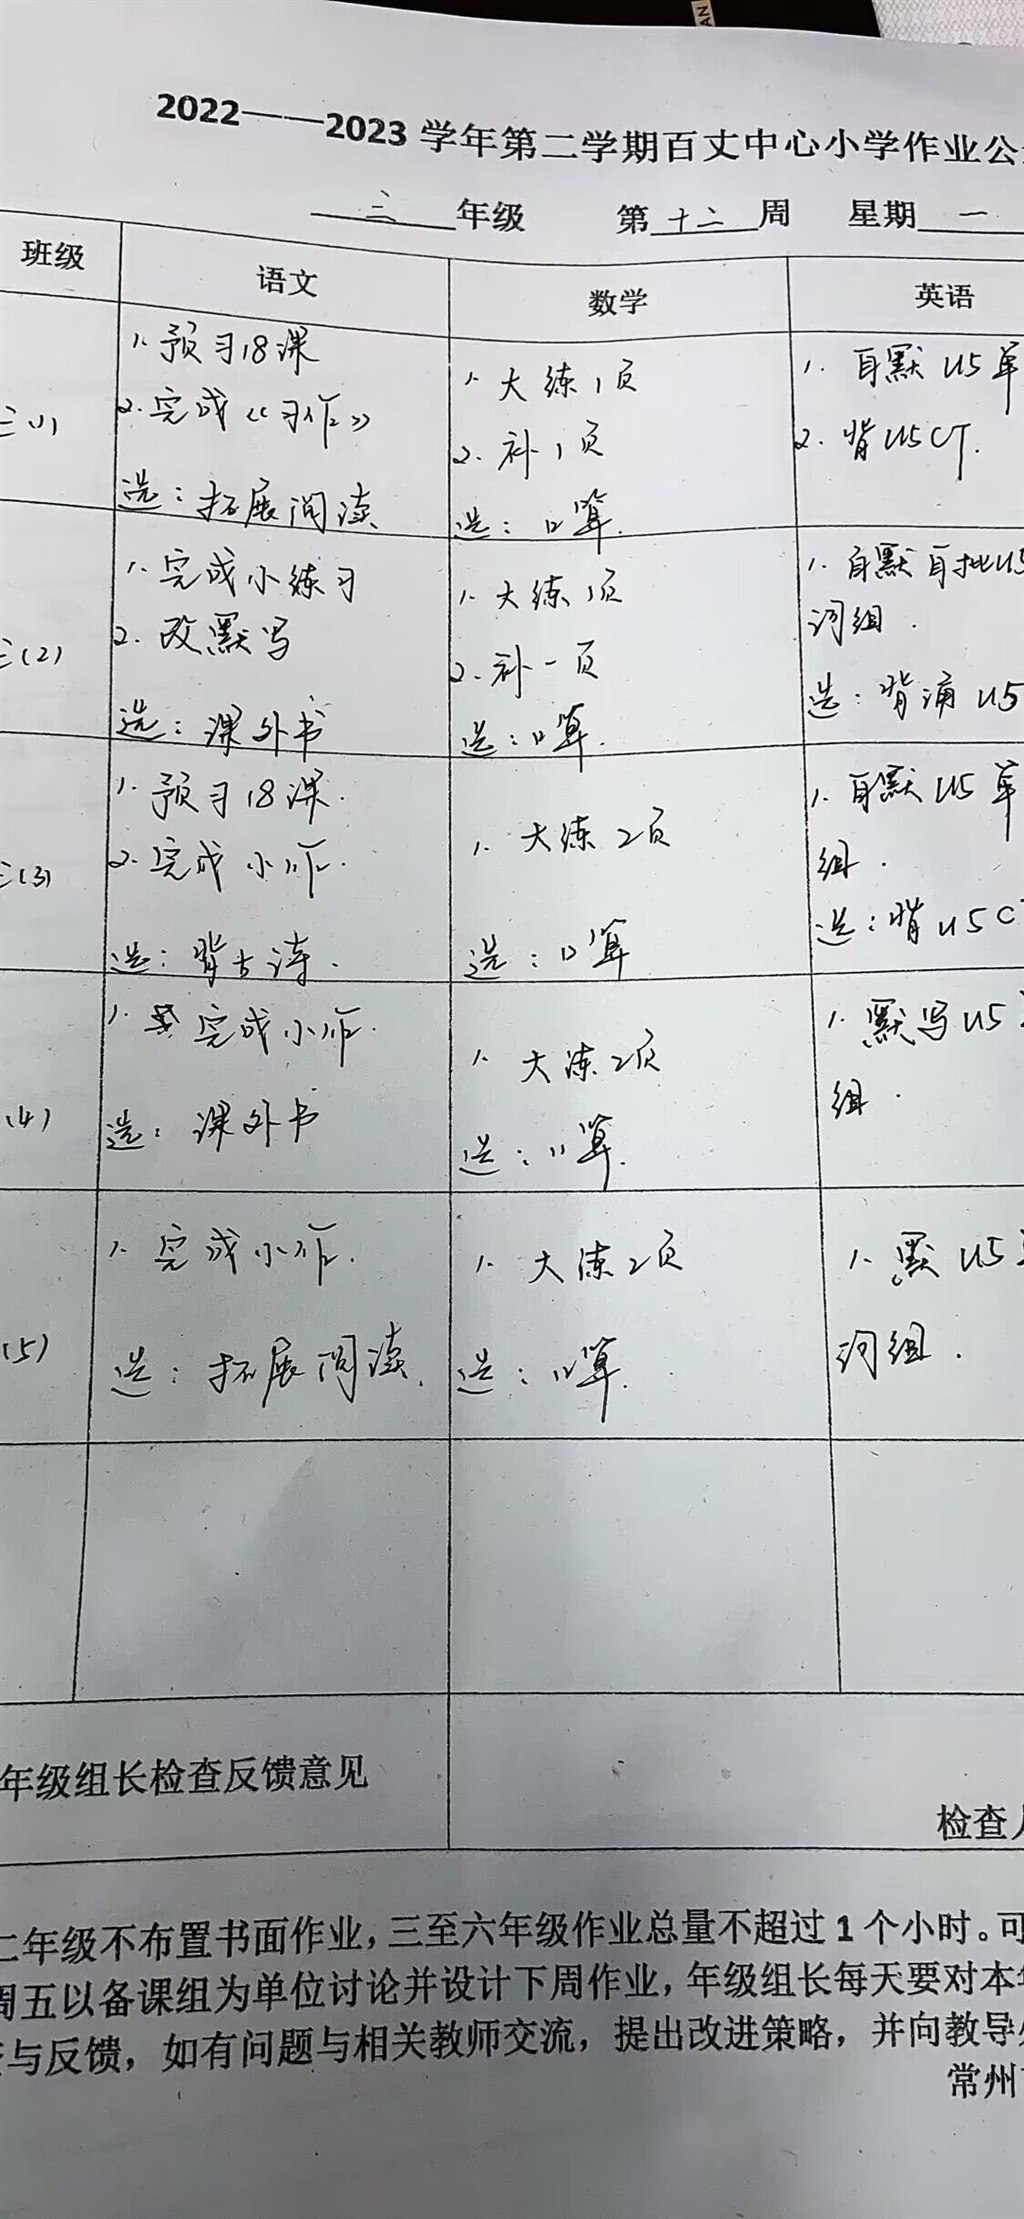 2022——2023学年第二学期百丈中心小学作业公
三 年级 第 十二 周 星期 一
班级 语文 数学 英语
三(1)
1. 预习18课
2. 完成《习作》
选：拓展阅读
1. 大练1页
2. 补1页
选：口算.
1. 自默U5单
2. 背U5CT.
三(2)
1. 完成小练习
2. 改默写
选：课外书
1. 大练1页
2. 补一页
选：口算.
1. 自默自批U5
词组.
选：背诵U5
三(3)
1. 预习18课.
2. 完成小作.
选：背古诗.
1. 大练2页
选：口算
1. 自默U5单
组.
选：背U5C
(4)
1. 完成小作.
选：课外书
1. 大练2页
选：口算.
1. 默写U5
组.
(5)
1. 完成小作.
选：拓展阅读.
1. 大练2页
选：口算.
1. 默U5
词组.
年级组长检查反馈意见
检查
二年级不布置书面作业，三至六年级作业总量不超过1个小时。可
周五以备课组为单位讨论并设计下周作业，年级组长每天要对本
与反馈，如有问题与相关教师交流，提出改进策略，并向教导
常州